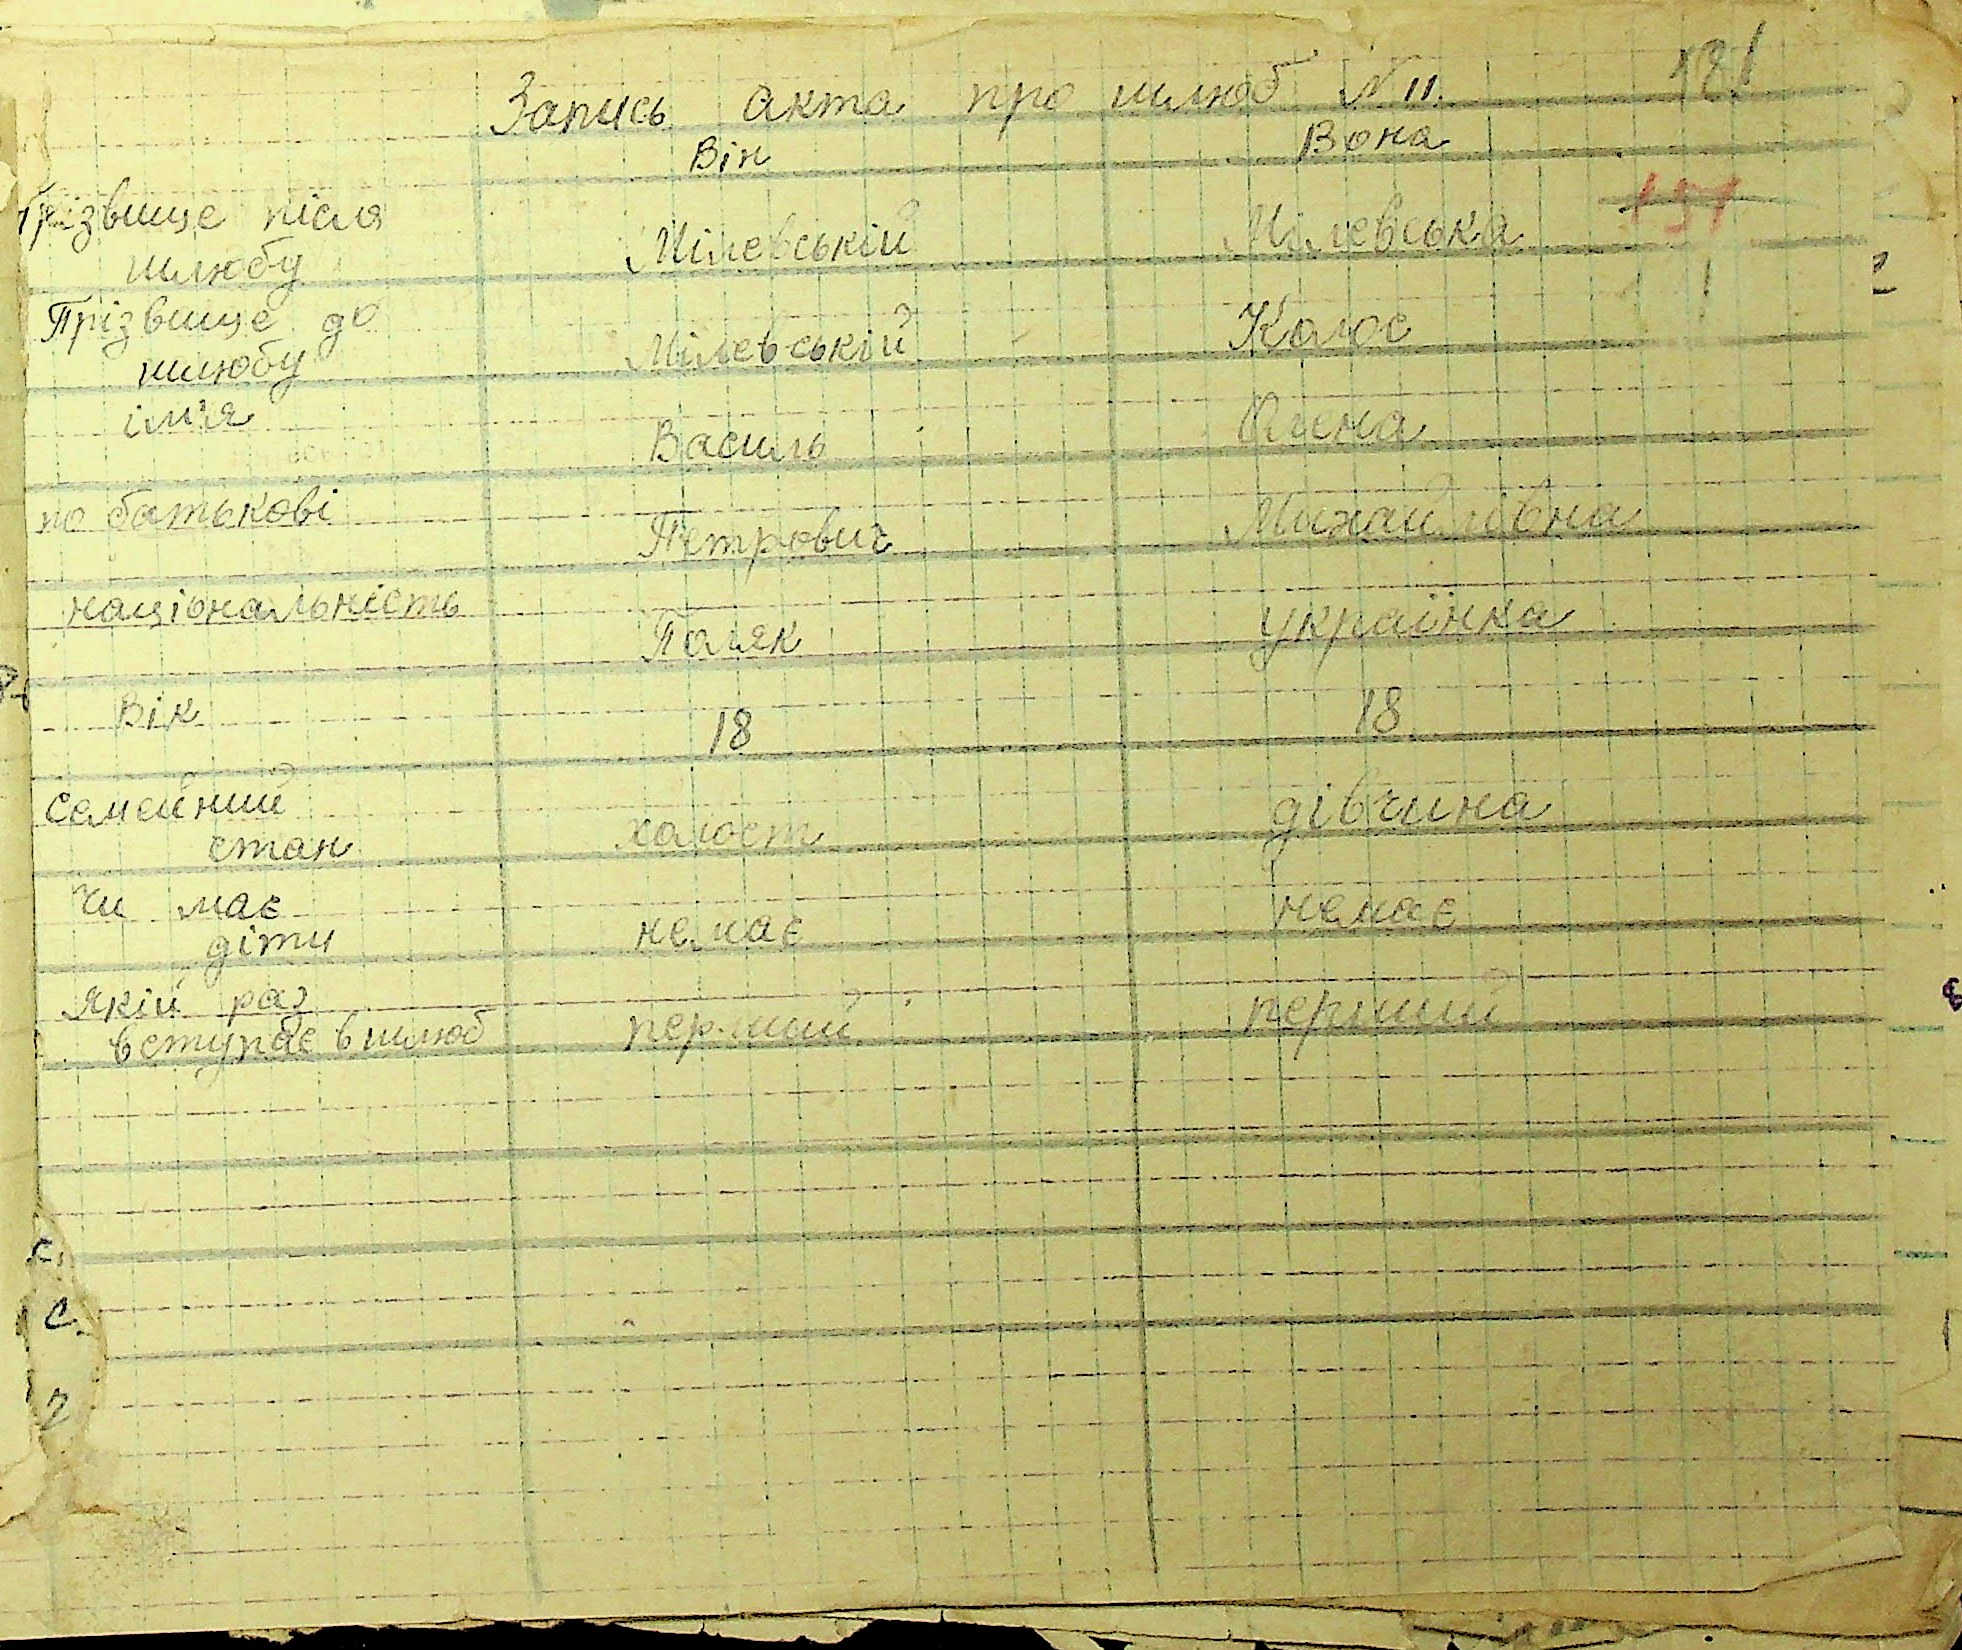 181
Запись акта про шлюб N 11.
Він Вона
Прізвище після
шлюбу Мілевській Мілевська
151
Прізвище до
шлюбу Мілевській Колос
ім'я Василь Олена
по батькові Петрович Михайлівна
національність Поляк Українка
Вік 18 18
Семейний
стан холост дівчина
Чи має
діти немає немає
Якій раз
вступає в шлюб перший перший